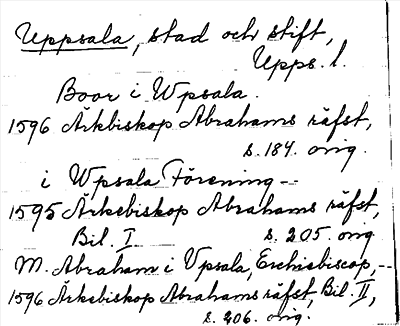 Uppsala, stad och stift,
Upps. l.
Boor i Wpsala.
1596 Ärkbiskop Abrahams räfst,
s. 184. orig.
i Wpsala Förening --
1595 Ärkebiskop Abrahams räfst,
Bil. I s. 205. orig
M. Abraham i Vpsala, Erchiebiscop, --
1596 Ärkebiskop Abrahams räfst, Bil. II,
s. 206. orig.